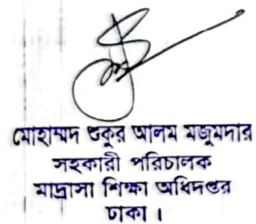 মোহাম্মদ শুকুর আলম মজুমদার
সহকারী পরিচালক
মাদ্রাসা শিক্ষা অধিদপ্তর
ঢাকা ।